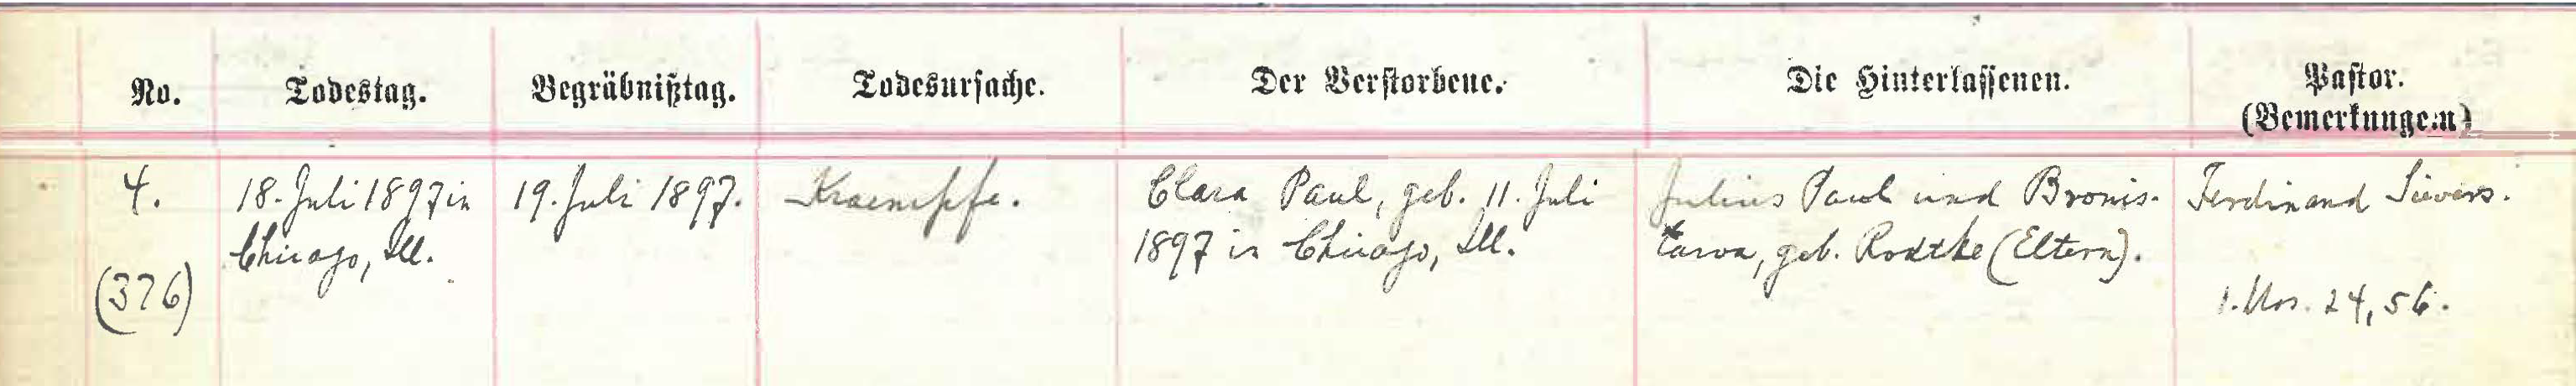 No.
Todestag.
Begräbnißtag.
Todesursache.
Der Verstorbene.
Die Hinterlassenen.
Pastor.
(Bemerkungen)
4.
(376)
18. Juli 1897 in
Chicago, Ill.
19. Juli 1897.
Kraempfe.
Clara Paul, geb. 11. Juli
1897 in Chicago, Ill.
Julius Paul und Bronis-
lawa, geb. Rodtke (Eltern).
Ferdinand Sievers.
1. Mos. 24, 56.